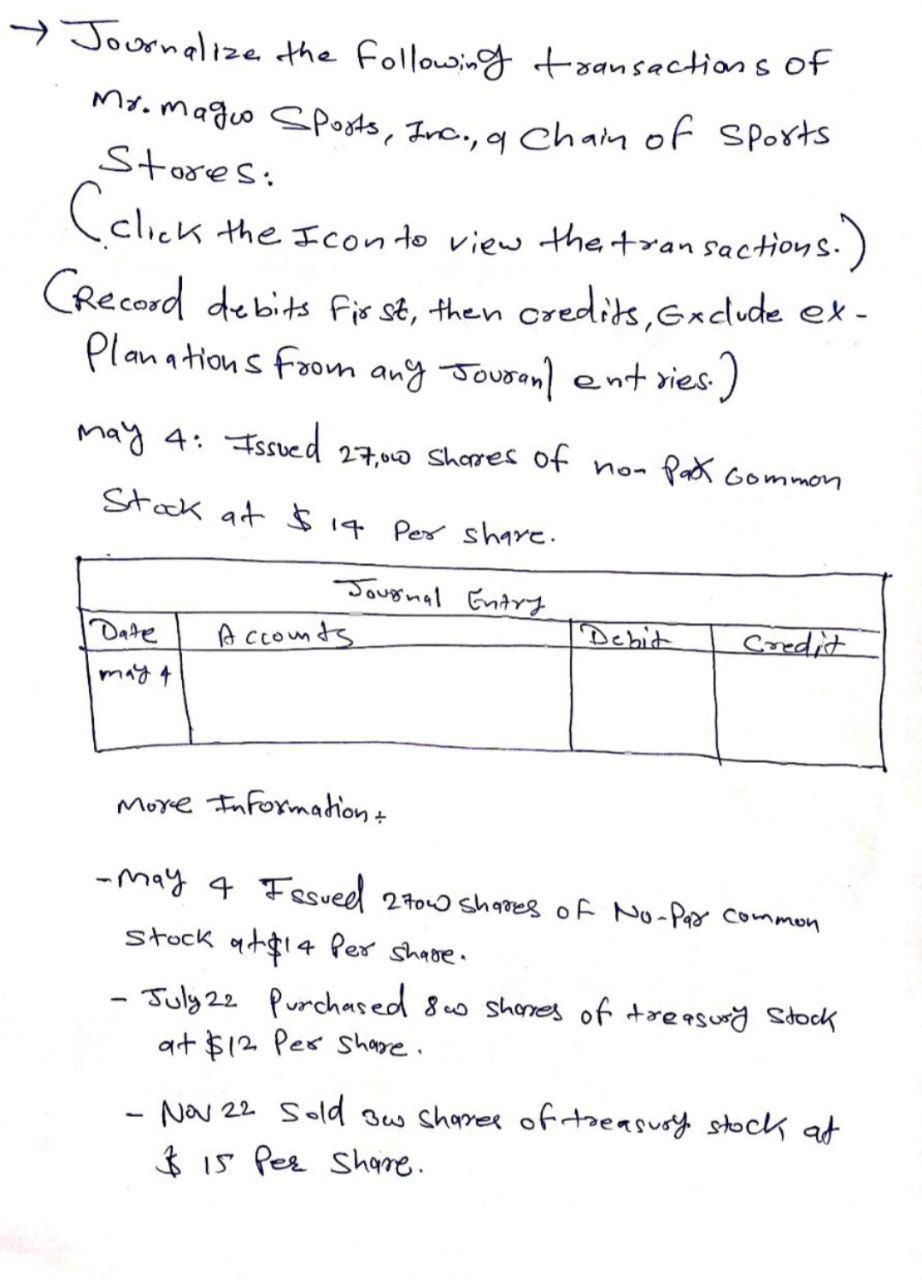 → Journalize the following transactions of
Mr. magoo Sports, Inc., a Chain of Sports
Stores:
(click the Icon to view the transactions.)
(Record debits first, then credits, Exclude ex-
planations from any Jouranl entries.)
may 4: Issued 27,000 Shares of non Par Common
Stock at $ 14 Per share.
Journal Entry
Date Accounts Debit Credit
may 4
More Information:
- May 4 Issued 27000 shares of No-Par common
stock at $14 Per share.
- July 22 Purchased 800 shares of treasury Stock
at $12 Per share.
- Nov 22 Sold 300 shares of treasury stock at
$ 15 Per Share.